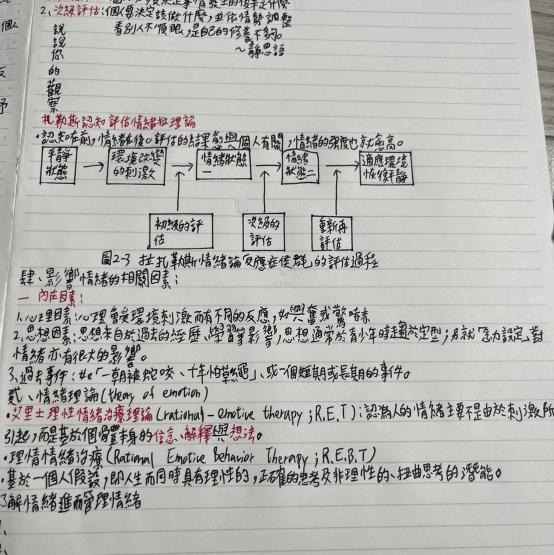 2、次級評估:個人要決定該做什麼,並依情勢調整
看別人不順眼,是自己的修養不夠。
~靜思語
說說你的觀察
扎勒斯認知評估情緒性理論
·認知在前,情緒在後。評估的結果愈與個人有關,情緒的強度也就愈高。
平靜狀態
環境改變的刺激
情緒狀態一
情緒狀態二
適應環境恢復平靜
初級的評估
次級的評估
重新再評估
圖2-3 拉扎勒斯情緒論反應症候群的評估過程
肆、影響情緒的相關因素:
一 內在因素:
1、心理因素:心理會受環境刺激而有不同的反應,如興奮或驚
2、思想因素:思想來自於過去的經歷、學習影響,思想通常於青少年時趨於定型;另就「念力設定」對
情緒亦有很大的影響。
3、過去事件:如「一朝被蛇咬、十年怕草繩」、或一個短期或長期的事件。
貳、情緒理論(theory of emotion)
·艾里士理性情緒治療理論(rational-emotive therapy;R.E.T):認為人的情緒主要不是由於刺激所
引起,而是基於個體本身的信念、解釋與想法。
·理情情緒治療(Rational Emotive Behavior Therapy;R.E.B.T)
·基於一個人假設,即人生而同時具有理性的,正確的思考及非理性的、扭曲思考的潛能。
了解情緒進而管理情緒